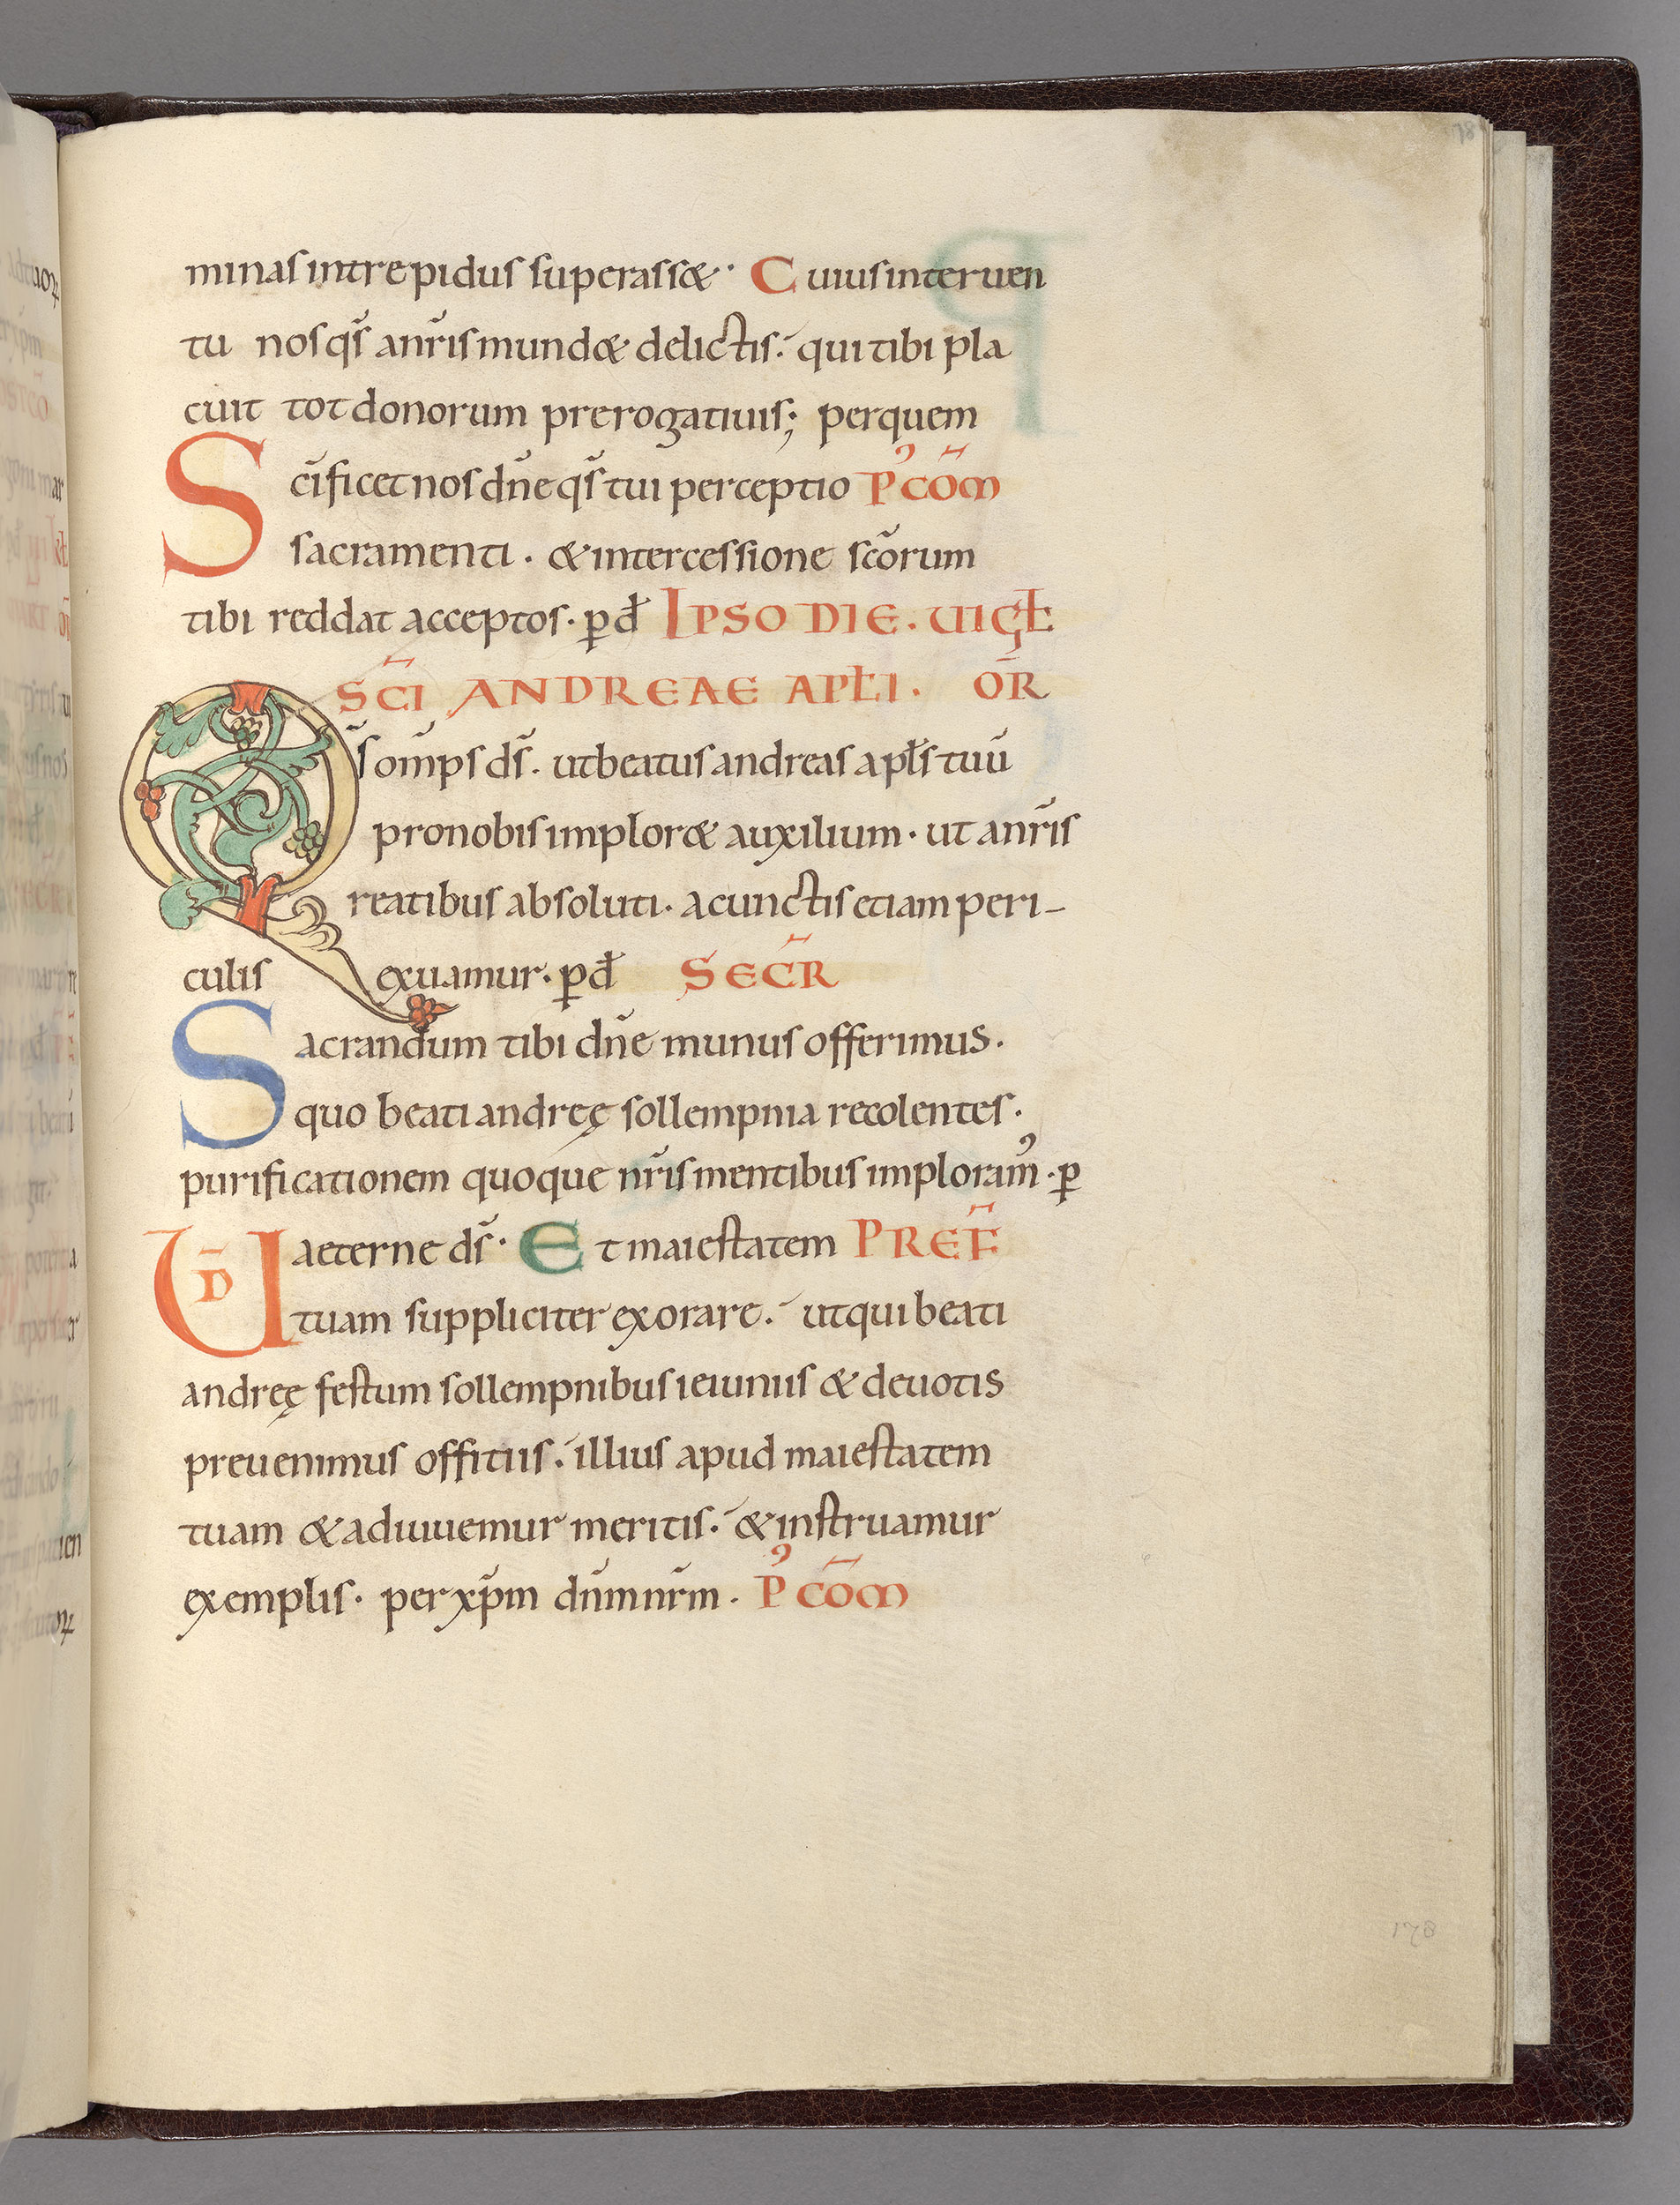 minas intrepidus superass&·· Cuius interuen
tu nos qs̃ a nr̃is mund& delictis·́ qui tibi pla
cuit tot donorum prerogatiuis; per quem
Scĩficet nos dñe qs̃ tui perceptio P' cõm
sacramenti. & intercessione scõrum
tibi reddat acceptos. ꝑ dł IPSO DIE. UIGŁ
SC̃I ANDREAE APŁI. OR̃
Qs̃ omp̃s ds̃. ut beatus andreas apłs tuũ
pro nobis implor& auxilium. ut a nr̃is
reatibus absoluti. a cunctis etiam peri-
culis exuamur. ꝑ dł SECR̃
Sacrandum tibi dñe munus offerimus.
quo beati andreę sollempnia recolentes.
purificationem quoque nr̃is mentibus imploram̃. ꝑ
UD̃ aeterne ds̃· Et maiestatem PREF̃
tuam suppliciter exorare·́ ut qui beati
andreę festum sollempnibus ieiuniis & deuotis
preuenimus offitiis·́ illius apud maiestatem
tuam & adiuuemur meritis·́ & instruamur
exemplis. per xp̃m dñm nr̃m. P' cõm
178